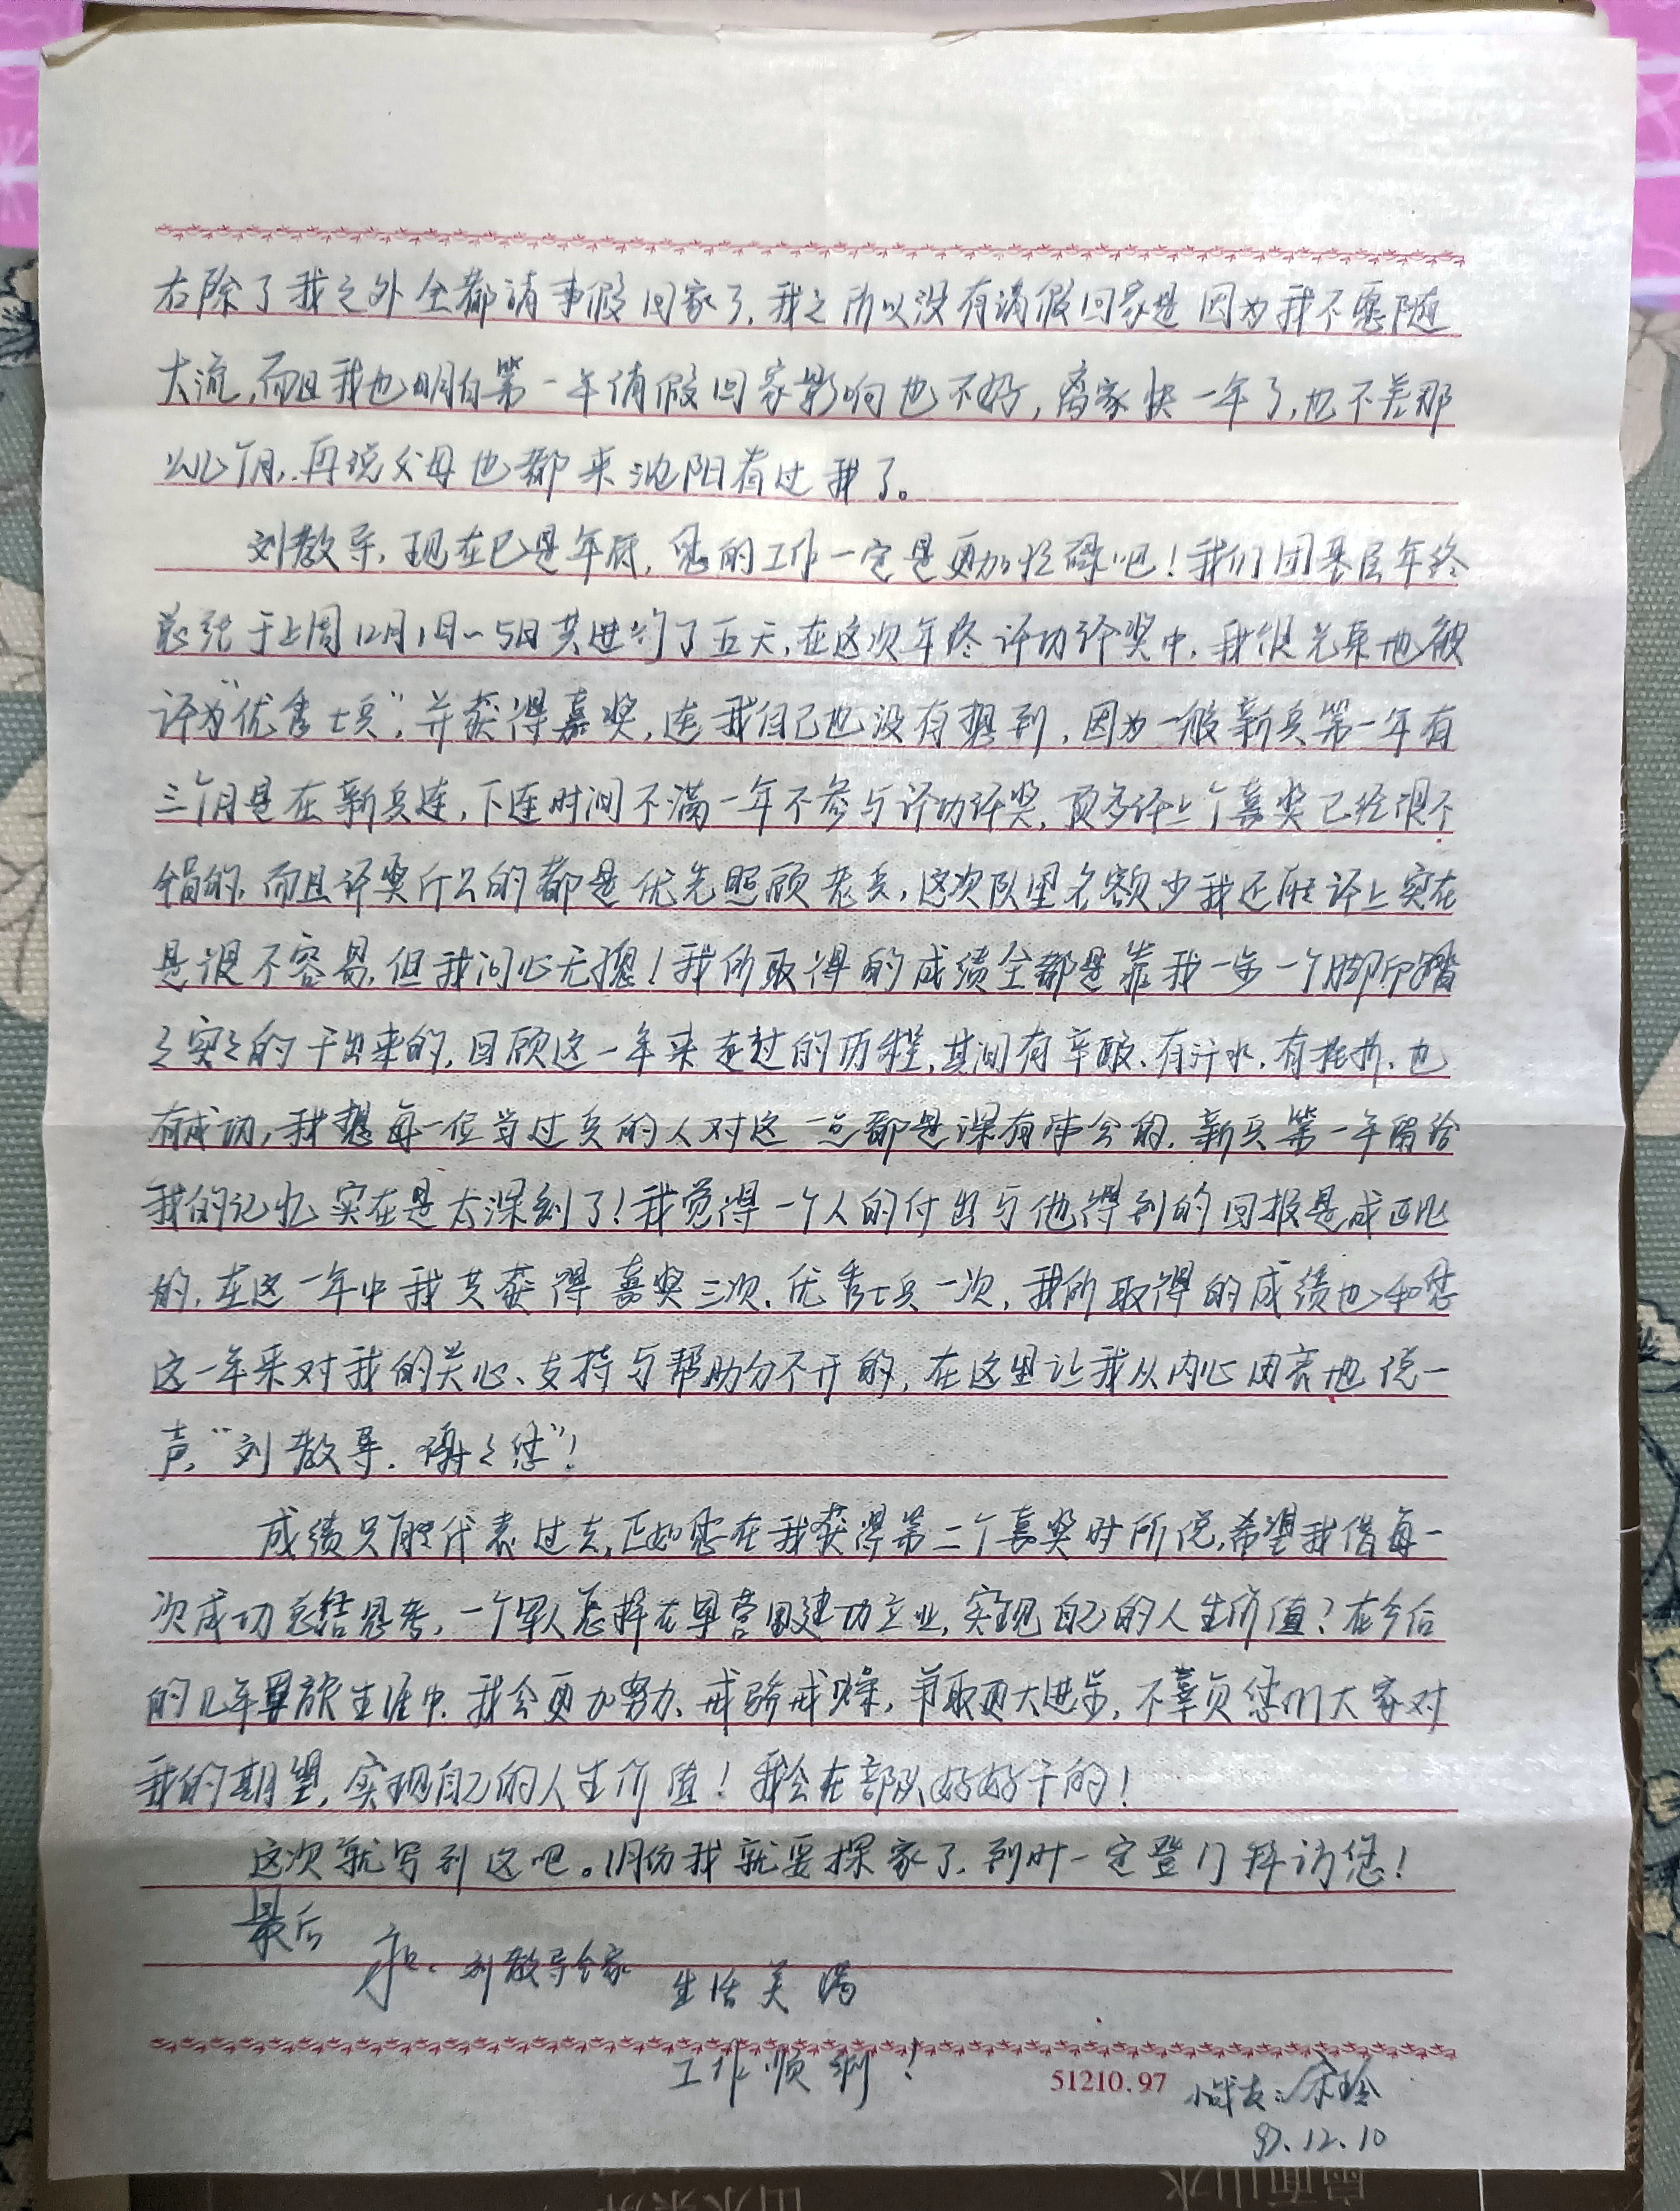 右除了我之外全都请事假回家了，我之所以没有请假回家是因为我不愿随
大流，而且我也明白第一年请假回家影响也不好，离家快一年了，也不差那
么几个月，再说父母也都来沈阳看过我了。
刘教导，现在已是年底，您的工作一定是更加忙碌吧！我们团基层年终
总结于上周12月1日～5日共进行了五天，在这次年终评功评奖中，我很光荣地被
评为“优秀士兵”，并获得嘉奖，连我自己也没有想到，因为一般新兵第一年有
三个月是在新兵连，下连时间不满一年不参与评功评奖，顶多评上个嘉奖已经很不
错的，而且评奖什么的都是优先照顾老兵，这次队里名额少我还能评上实在
是很不容易，但我问心无愧！我所取得的成绩全都是靠我一步一个脚印踏
踏实实的干出来的，回顾这一年来走过的历程，其间有辛酸、有汗水、有挫折、也
有成功，我想每一位当过兵的人对这一点都是深有体会的，新兵第一年留给
我的记忆实在是太深刻了！我觉得一个人的付出与他得到的回报是成正比
的，在这一年中我共获得嘉奖三次、优秀士兵一次，我所取得的成绩也和您
这一年来对我的关心、支持与帮助分不开的，在这里让我从内心由衷地说一
声，“刘教导，谢谢您”！
成绩只能代表过去，正如您在我获得第二个嘉奖时所说，希望我借每一
次成功总结思考，一个军人怎样在军营里建功立业，实现自己的人生价值？在今后
的几年军旅生涯中，我会更加努力、戒骄戒躁，争取更大进步，不辜负您们大家对
我的期望，实现自己的人生价值！我会在部队好好干的！
这次就写到这吧。1月份我就要探家了，到时一定登门拜访您！
最后
祝：刘教导全家
生活美满
工作顺利！
51210.97
小战友：
97.12.10